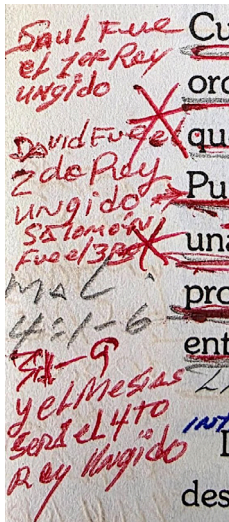 Saul Fue
el 1er Rey
ungido
David Fue el
2do Rey
ungido
Salomón
Fue el 3Ro
MAL
4:1-6
y el Mesías
será el 4to
Rey Ungido
Cu
ord
que
Pu
una
pro
ent
INT
des